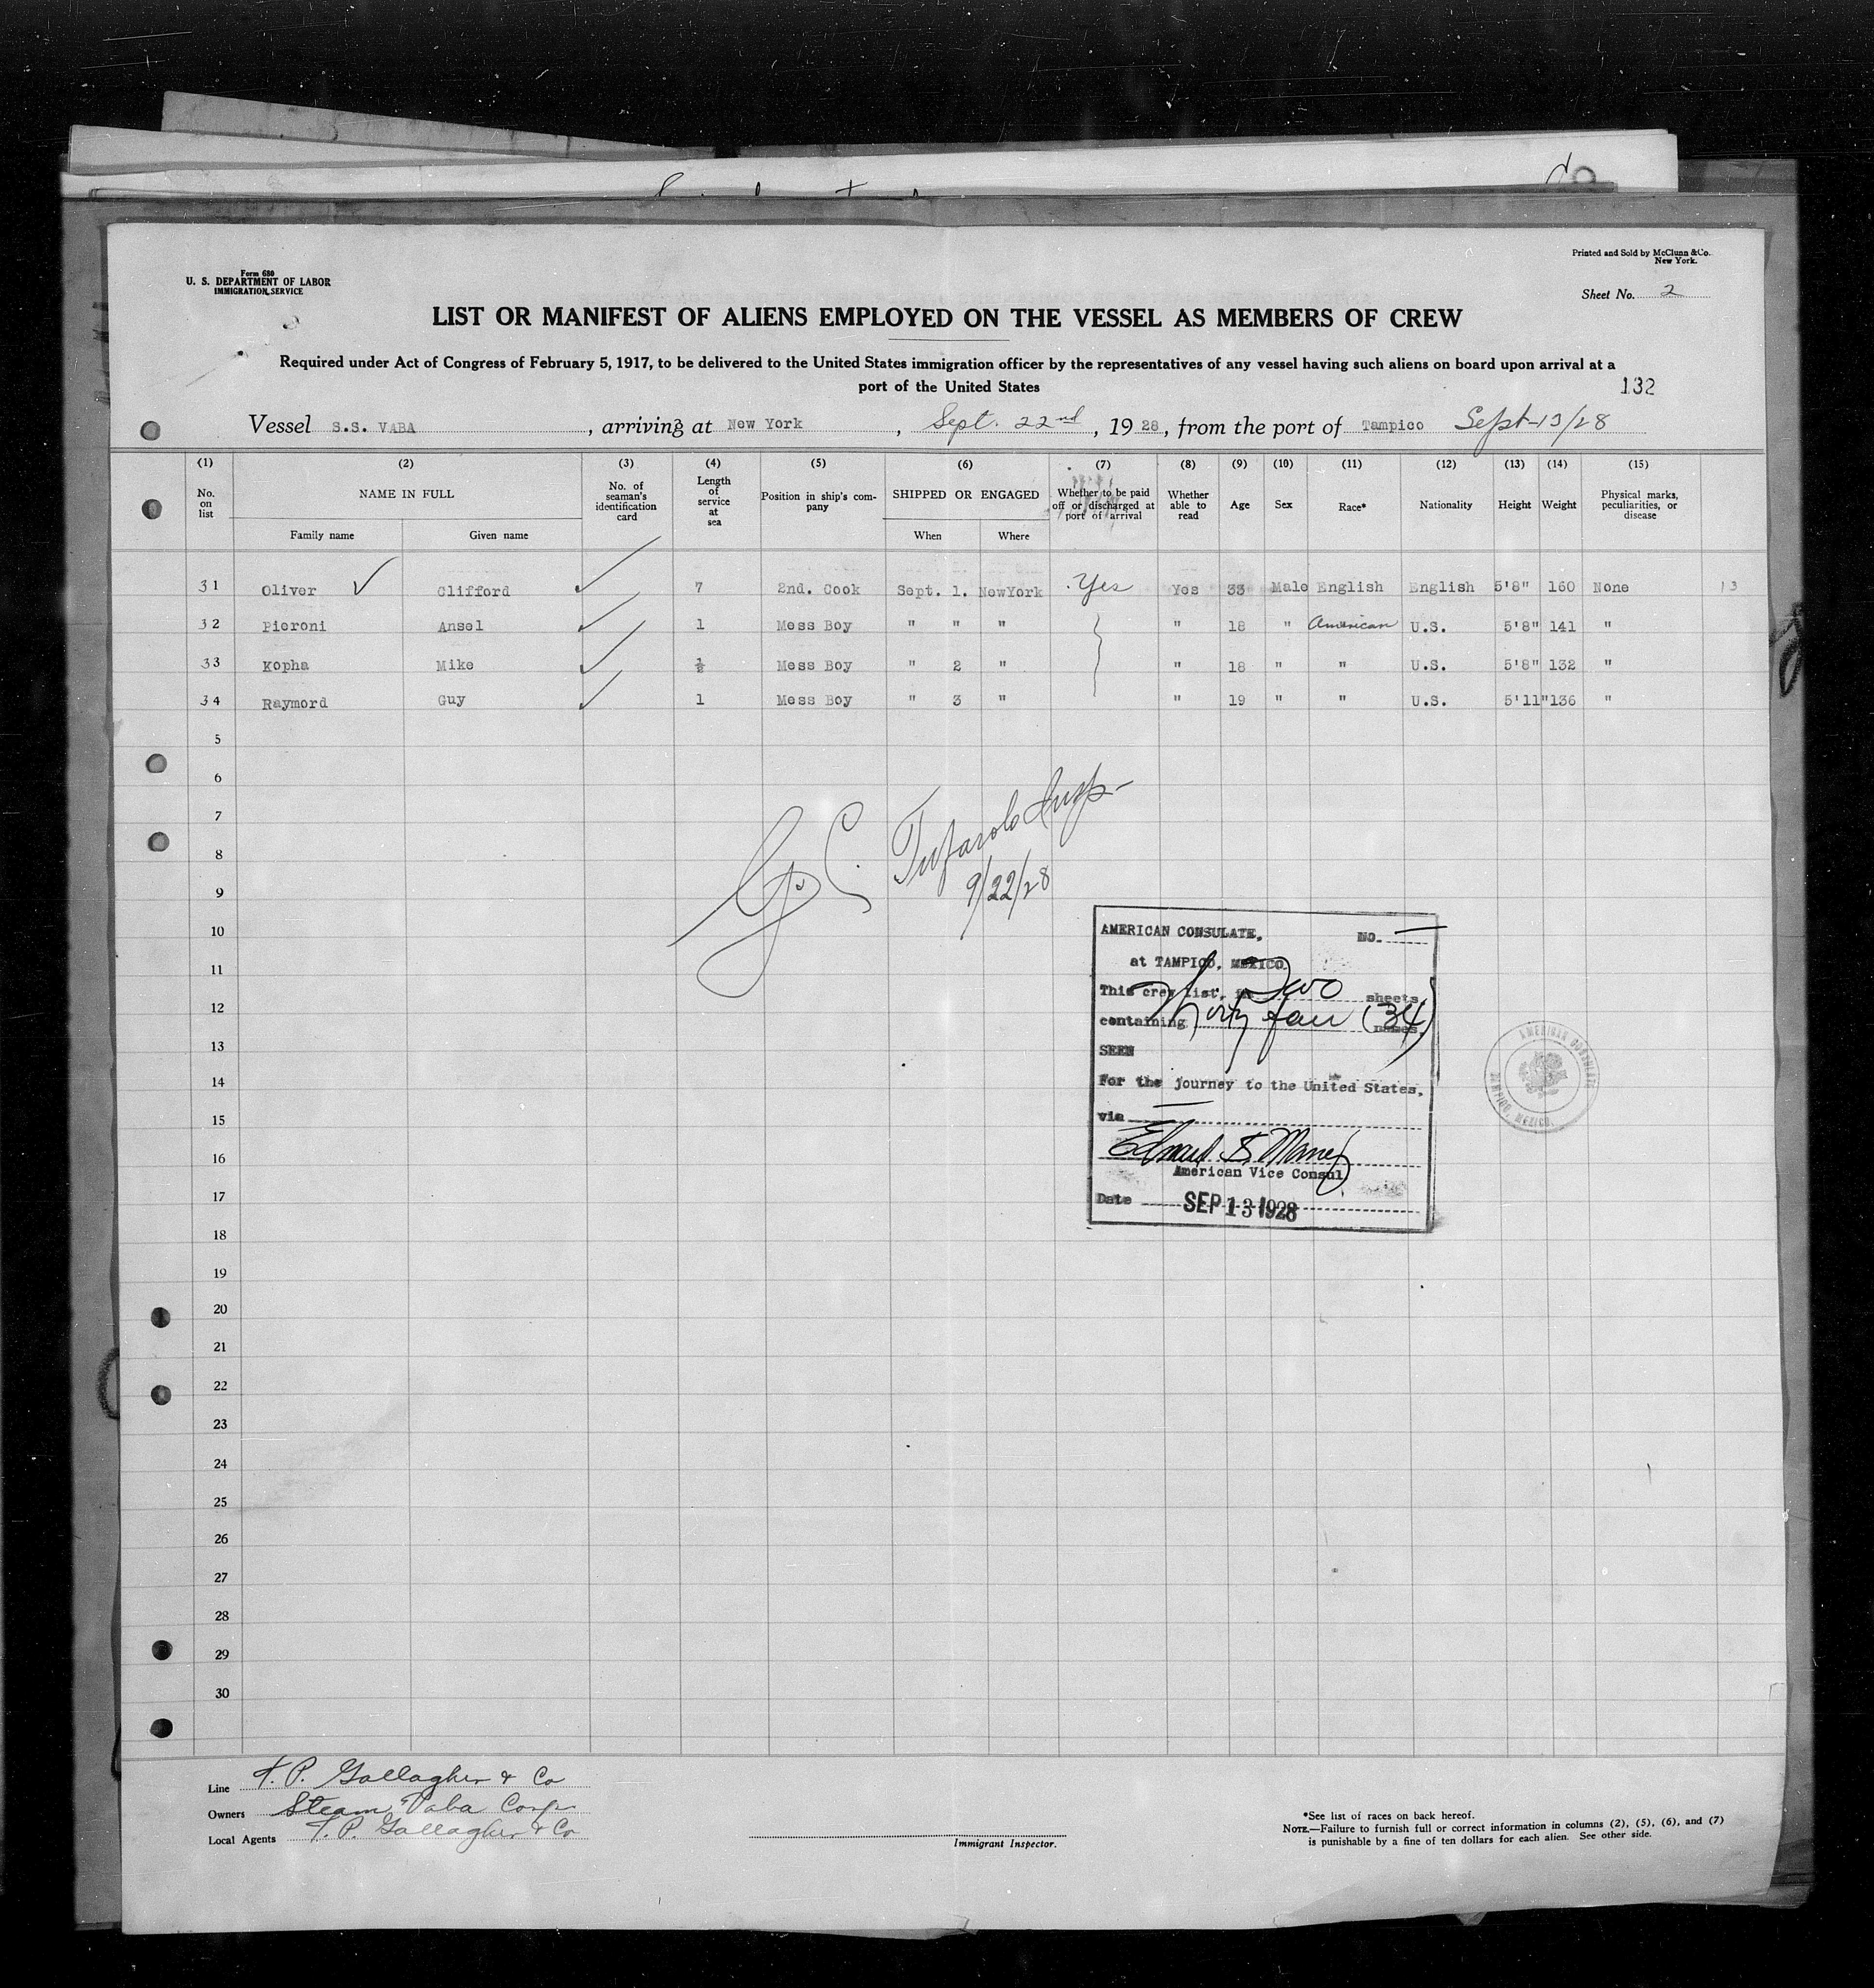 Form 680
U. S. DEPARTMENT OF LABOR
IMMIGRATION SERVICE
Printed and Sold by McClunn & Co.
New York.
Sheet No. 2
LIST OR MANIFEST OF ALIENS EMPLOYED ON THE VESSEL AS MEMBERS OF CREW
Required under Act of Congress of February 5, 1917, to be delivered to the United States immigration officer by the representatives of any vessel having such aliens on board upon arrival at a
port of the United States
132
Vessel S.S. VABA, arriving at New York, Sept. 22nd, 1928, from the port of Tampico Sept-13/28
(1) (2) (3) (4) (5) (6) (7) (8) (9) (10) (11) (12) (13) (14) (15)
No. on list NAME IN FULL No. of seaman's identification card Length of service at sea Position in ship's company SHIPPED OR ENGAGED Whether to be paid off or discharged at port of arrival Whether able to read Age Sex Race* Nationality Height Weight Physical marks, peculiarities, or disease
Family name Given name When Where
31 Oliver Clifford 7 2nd. Cook Sept. 1. NewYork Yes Yes 33 Male English English 5'8" 160 None 13
32 Pieroni Ansel 1 Mess Boy " " " " 18 " American U.S. 5'8" 141 "
33 Kopha Mike ½ Mess Boy " 2 " " 18 " " U.S. 5'8" 132 "
34 Raymord Guy 1 Mess Boy " 3 " " 19 " " U.S. 5'11" 136 "
5
6
7
8
9
10
11
12
13
14
15
16
17
18
19
20
21
22
23
24
25
26
27
28
29
30
Insp-
9/22/28
AMERICAN CONSULATE, NO.
at TAMPICO, MEXICO
This crew list, in Two sheets
containing Thirty four (34) names.
SEEN
For the journey to the United States,
via
American Vice Consul
Date SEP 13 1928
AMERICAN CONSULATE
TAMPICO, MEXICO.
Line T. P. Gallagher & Co
Owners Steam Vaba Corp
Local Agents T. P. Gallagher & Co
Immigrant Inspector.
*See list of races on back hereof.
NOTE.—Failure to furnish full or correct information in columns (2), (5), (6), and (7)
is punishable by a fine of ten dollars for each alien. See other side.